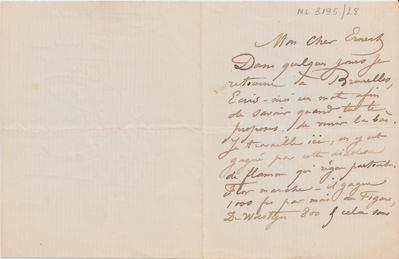 ML 3195/28
Mon Cher Ernest
Dans quelques jours je
retourne à Bruxelles,
Ecris-moi un mot afin
de savoir quand tu te
proposes de venir là bas.
Je travaille ici, on y est
gagné par cette
de flamme qui règne partout.
Flor marche - il gagne
1000 frs par mois au Figaro,
De Woestyn 800 & cela sans